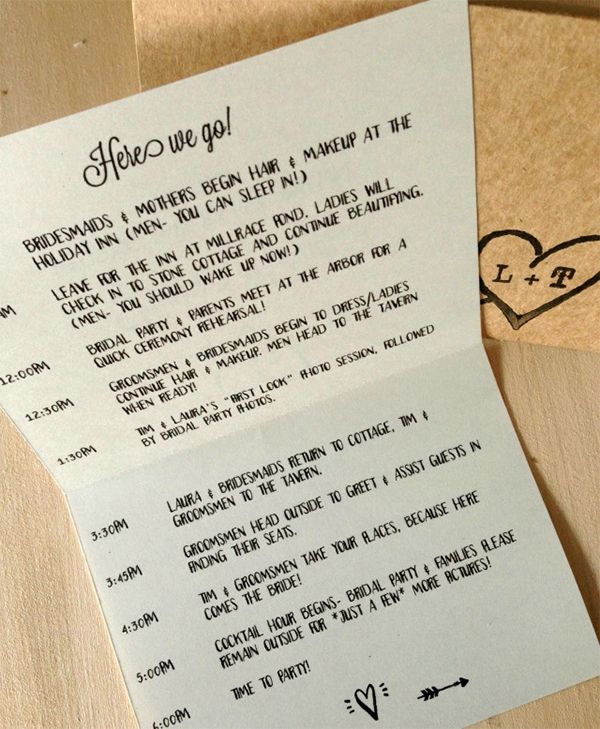 Here we go!
BRIDESMAIDS & MOTHERS BEGIN HAIR & MAKEUP AT THE
HOLIDAY INN (MEN- YOU CAN SLEEP IN!)
LEAVE FOR THE INN AT MILLRACE POND. LADIES WILL
CHECK IN TO STONE COTTAGE AND CONTINUE BEAUTIFYING.
(MEN- YOU SHOULD WAKE UP NOW!)
12:00PM BRIDAL PARTY & PARENTS MEET AT THE ARBOR FOR A
QUICK CEREMONY REHEARSAL!
12:30PM GROOMSMEN & BRIDESMAIDS BEGIN TO DRESS/LADIES
CONTINUE HAIR & MAKEUP. MEN HEAD TO THE TAVERN
WHEN READY!
1:30PM TIM & LAURA'S "FIRST LOOK" PHOTO SESSION, FOLLOWED
BY BRIDAL PARTY PHOTOS.
3:30PM LAURA & BRIDESMAIDS RETURN TO COTTAGE, TIM &
GROOMSMEN TO THE TAVERN.
3:45PM GROOMSMEN HEAD OUTSIDE TO GREET & ASSIST GUESTS IN
FINDING THEIR SEATS.
4:30PM TIM & GROOMSMEN TAKE YOUR PLACES, BECAUSE HERE
COMES THE BRIDE!
5:00PM COCKTAIL HOUR BEGINS- BRIDAL PARTY & FAMILIES PLEASE
REMAIN OUTSIDE FOR *JUST A FEW* MORE PICTURES!
6:00PM TIME TO PARTY!
L + T